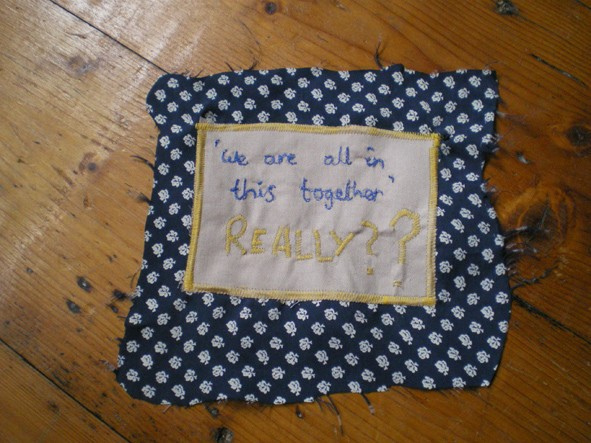 'we are all in
this together'
REALLY??